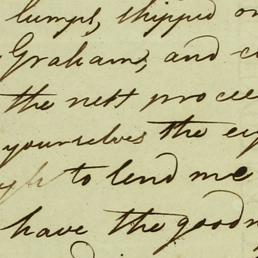 lumps, shipped on
Graham, and
the nett procee
yourselves the
to lend me
have the goodn